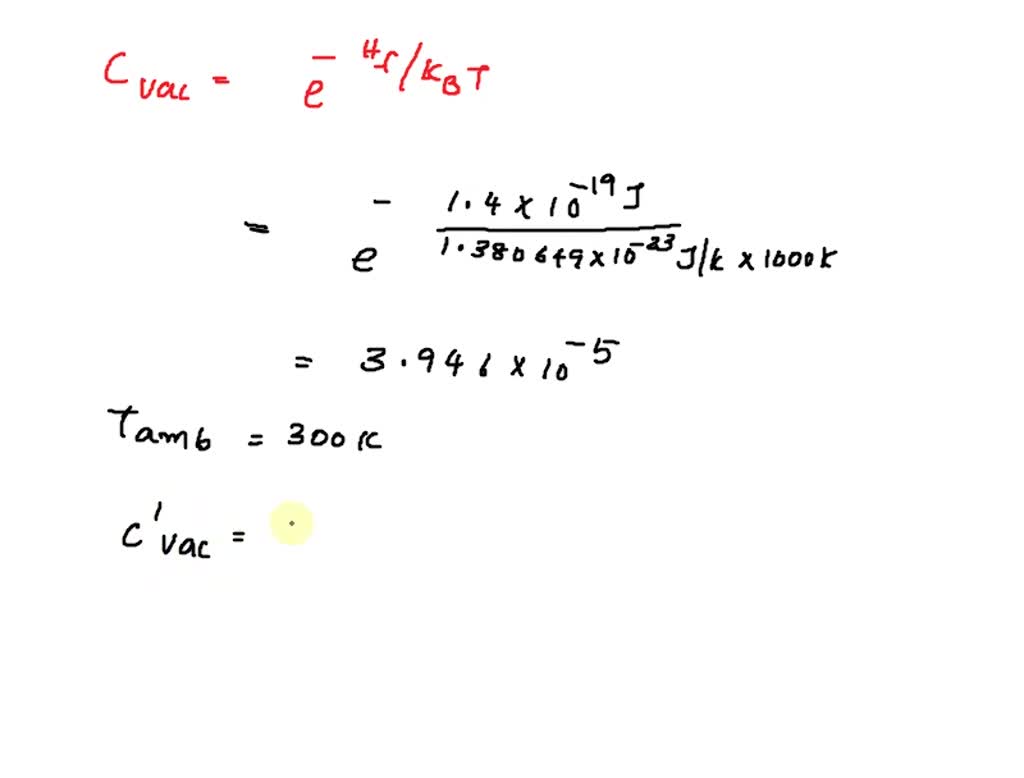 C vac = e^- Hf/KBT
= e^- 1.4 x 10^-19 J / 1.380649 x 10^-23 J/K x 1000K
= 3.946 x 10^-5
Tamb = 300 K
C'vac =